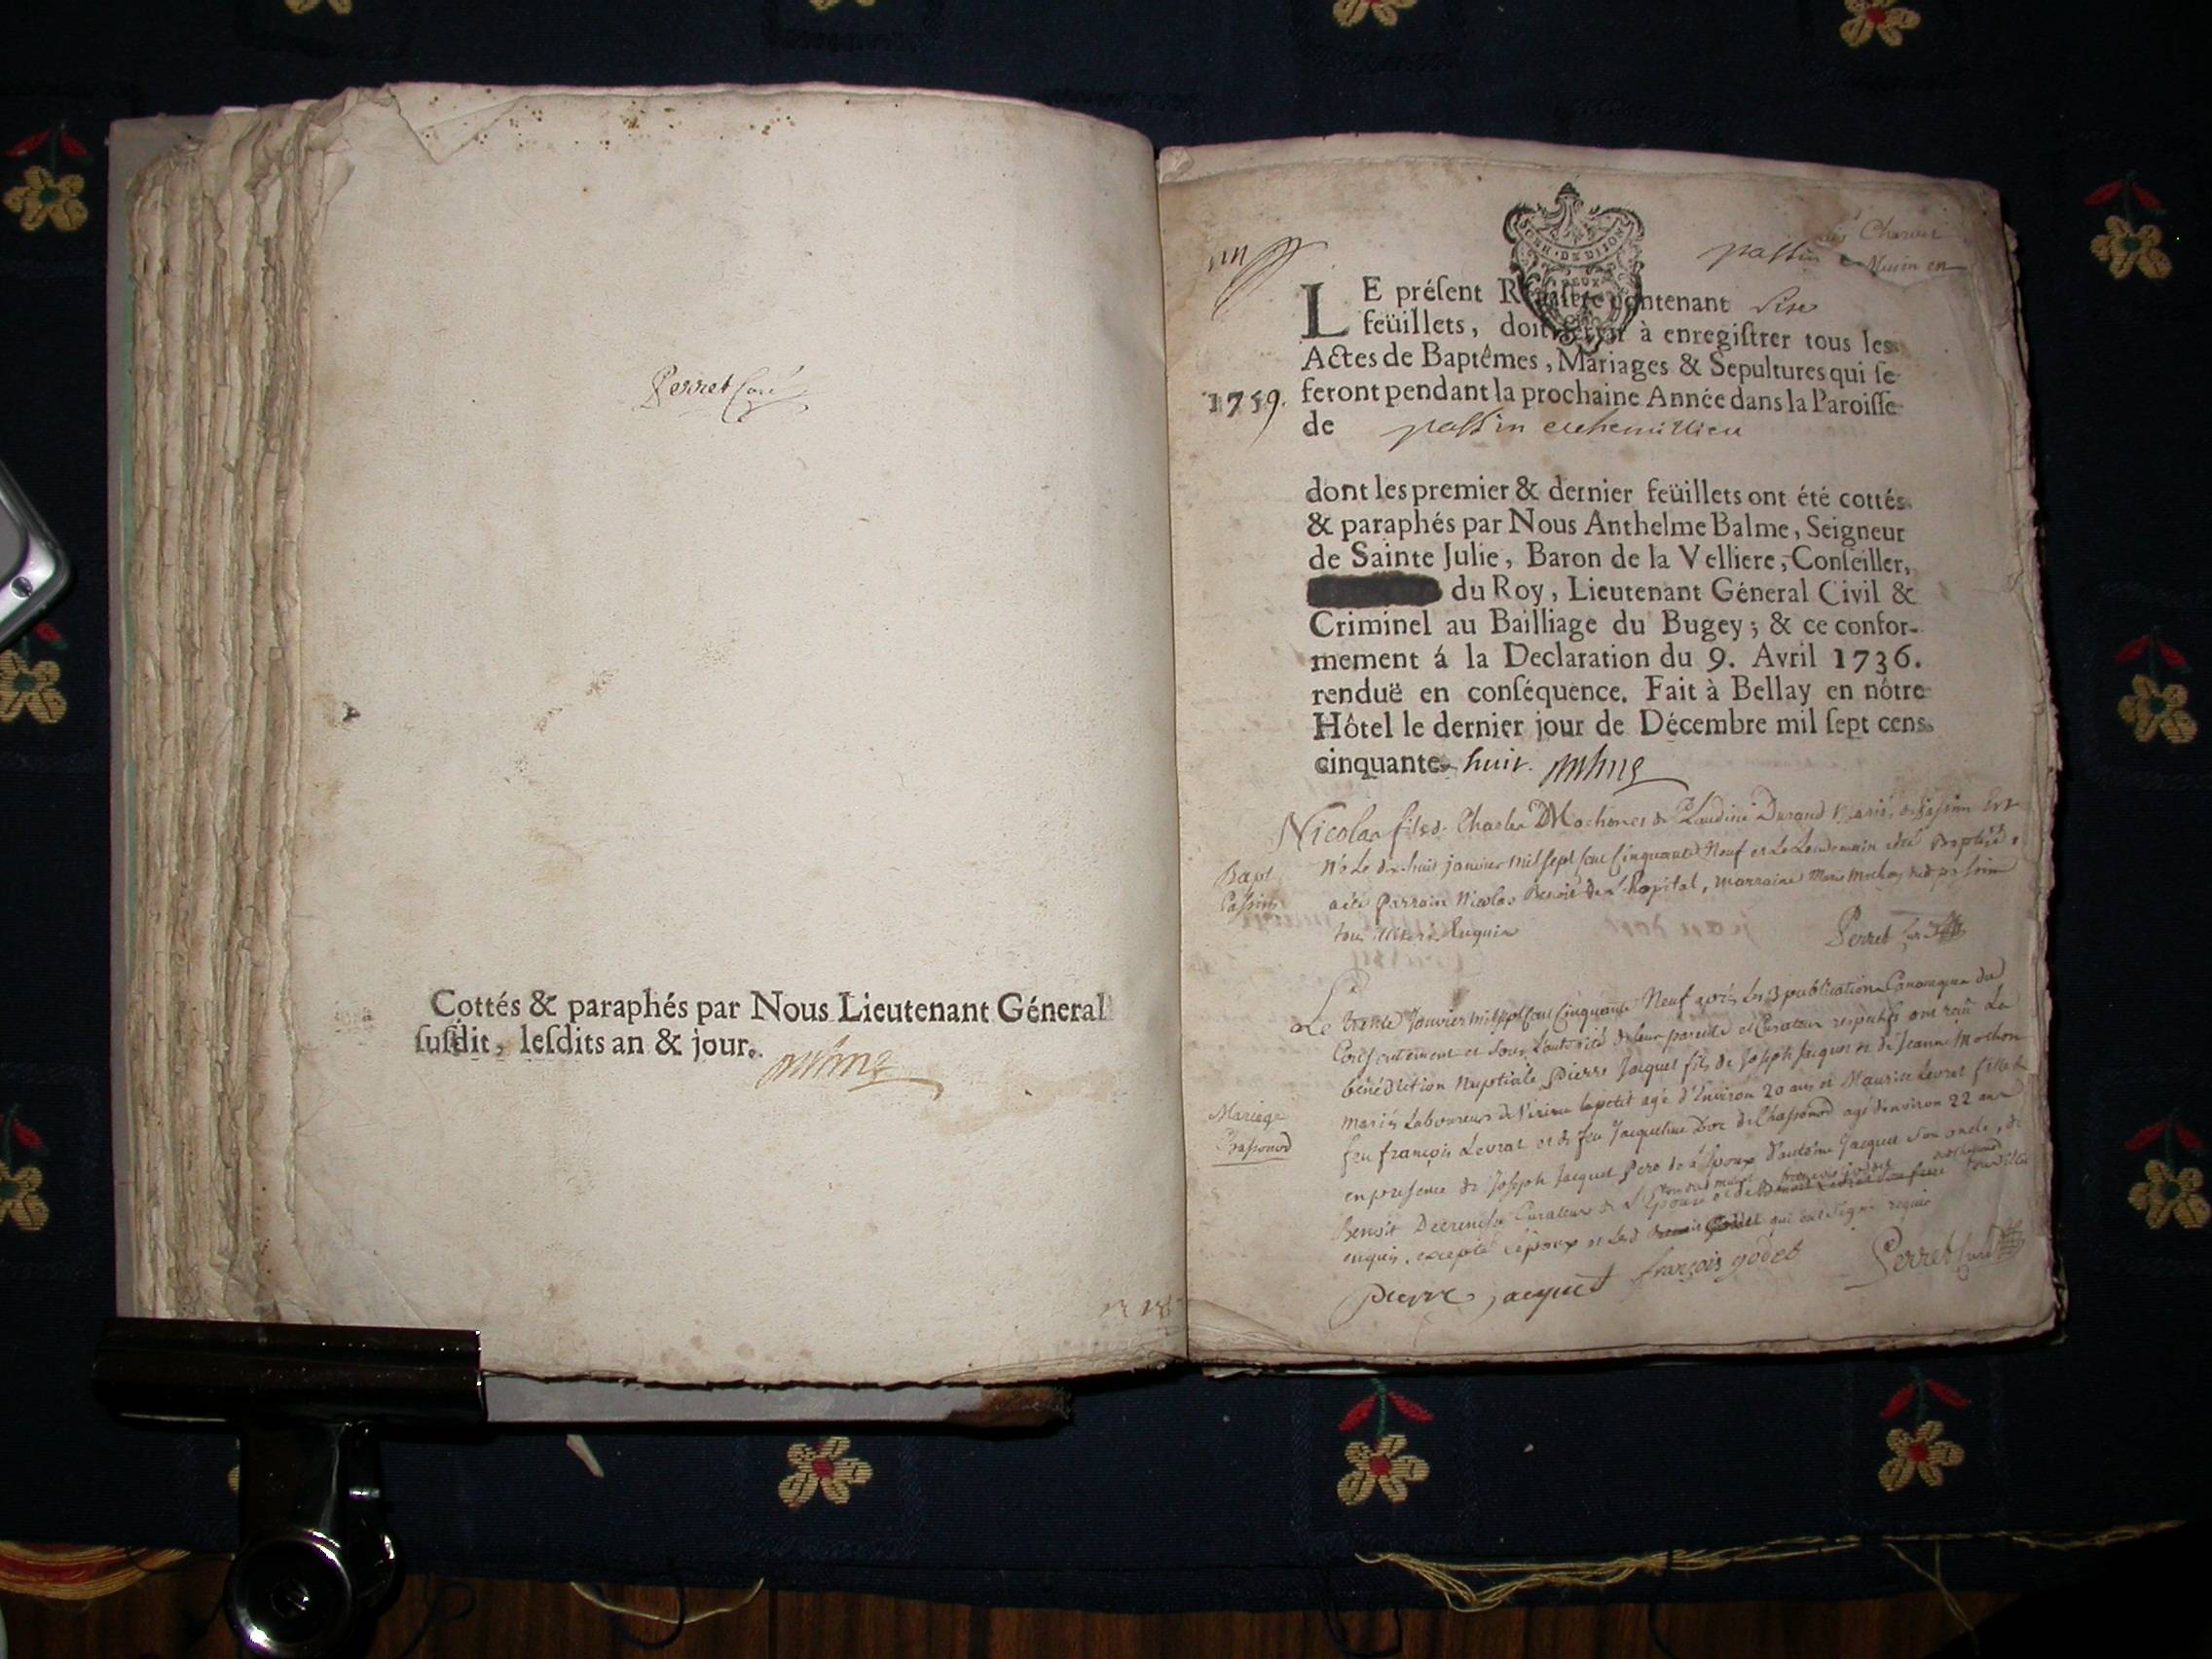 Perret Curé
Cottés & paraphés par Nous Lieutenant Géneral
ſuſdit, leſdits an & jour.
passin
LE préſent Regiſtre contenant Sise
feüillets, doit ſervir à enregiſtrer tous les
Actes de Baptêmes, Mariages & Sepultures qui ſe
1759. feront pendant la prochaine Année dans la Paroiſſe
de passin
dont les premier & dernier feüillets ont été cottés
& paraphés par Nous Anthelme Balme, Seigneur
de Sainte Julie, Baron de la Velliere, Conſeiller,
du Roy, Lieutenant Géneral Civil &
Criminel au Bailliage du Bugey; & ce confor-
mement á la Declaration du 9. Avril 1736.
renduë en conſéquence. Fait à Bellay en nôtre
Hôtel le dernier jour de Décembre mil ſept cens
cinquante huit.
Nicolas fils de Charles Durand
Né Le dix huit janvier mil sept Cent Cinquante Neuf et Le Lendemain été Baptisé,
Bapt
Passin
parrain Nicolas Benoit de L'hopital, marraine Marie
tous illiterés Enquis
Perret Curé
Le trente Janvier mil sept Cent Cinquante Neuf après les 3 publications Canoniques du
Consentement et sous L'autorité de leur parents et Curateur respectifs ont reçu La
bénédiction Nuptiale pierre Jacquet fils de Joseph Jacquet et de Jeanne Mochon
mariés Laboureurs de Virieu le petit agé d'Environ 20 ans et Maurise Levrat fille de
Mariage
feu françois Levrat et de feu Jacqueline agé d'environ 22 ans
en presence de Joseph Jacquet pere de L'Epoux d'antoine Jacquet Son oncle, de
Benoit Curateur de L'Epouse
enquis, excepté L'epoux qui ont Signé requis
pierre jacquet françois godet Perret Curé